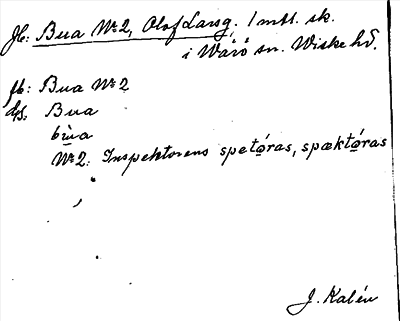 Jb: Bua No 2, Olof Larsg. 1 mtl. sk.
i Wärö sn. Wiske hd.
jb: Bua No 2
dpl. Bua
bùa
No 2: Inspektorens spetọ́ras, spæktọ́ras
J. Kalén